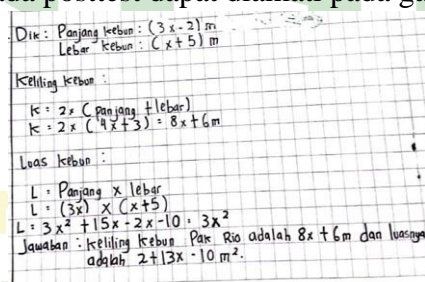 da posttest dapat diamati pada ga
Dik : Panjang kebun : (3x-2) m
Lebar kebun : (x+5) m
Keliling kebun :
K = 2x (panjang + lebar)
K = 2x (4x+3) = 8x+6m
Luas kebun :
L = Panjang x lebar
L = (3x) x (x+5)
L = 3x² +15x -2x -10 = 3x²
Jawaban : keliling kebun Pak Rio adalah 8x +6m dan luasnya
adalah 2+13x -10 m².